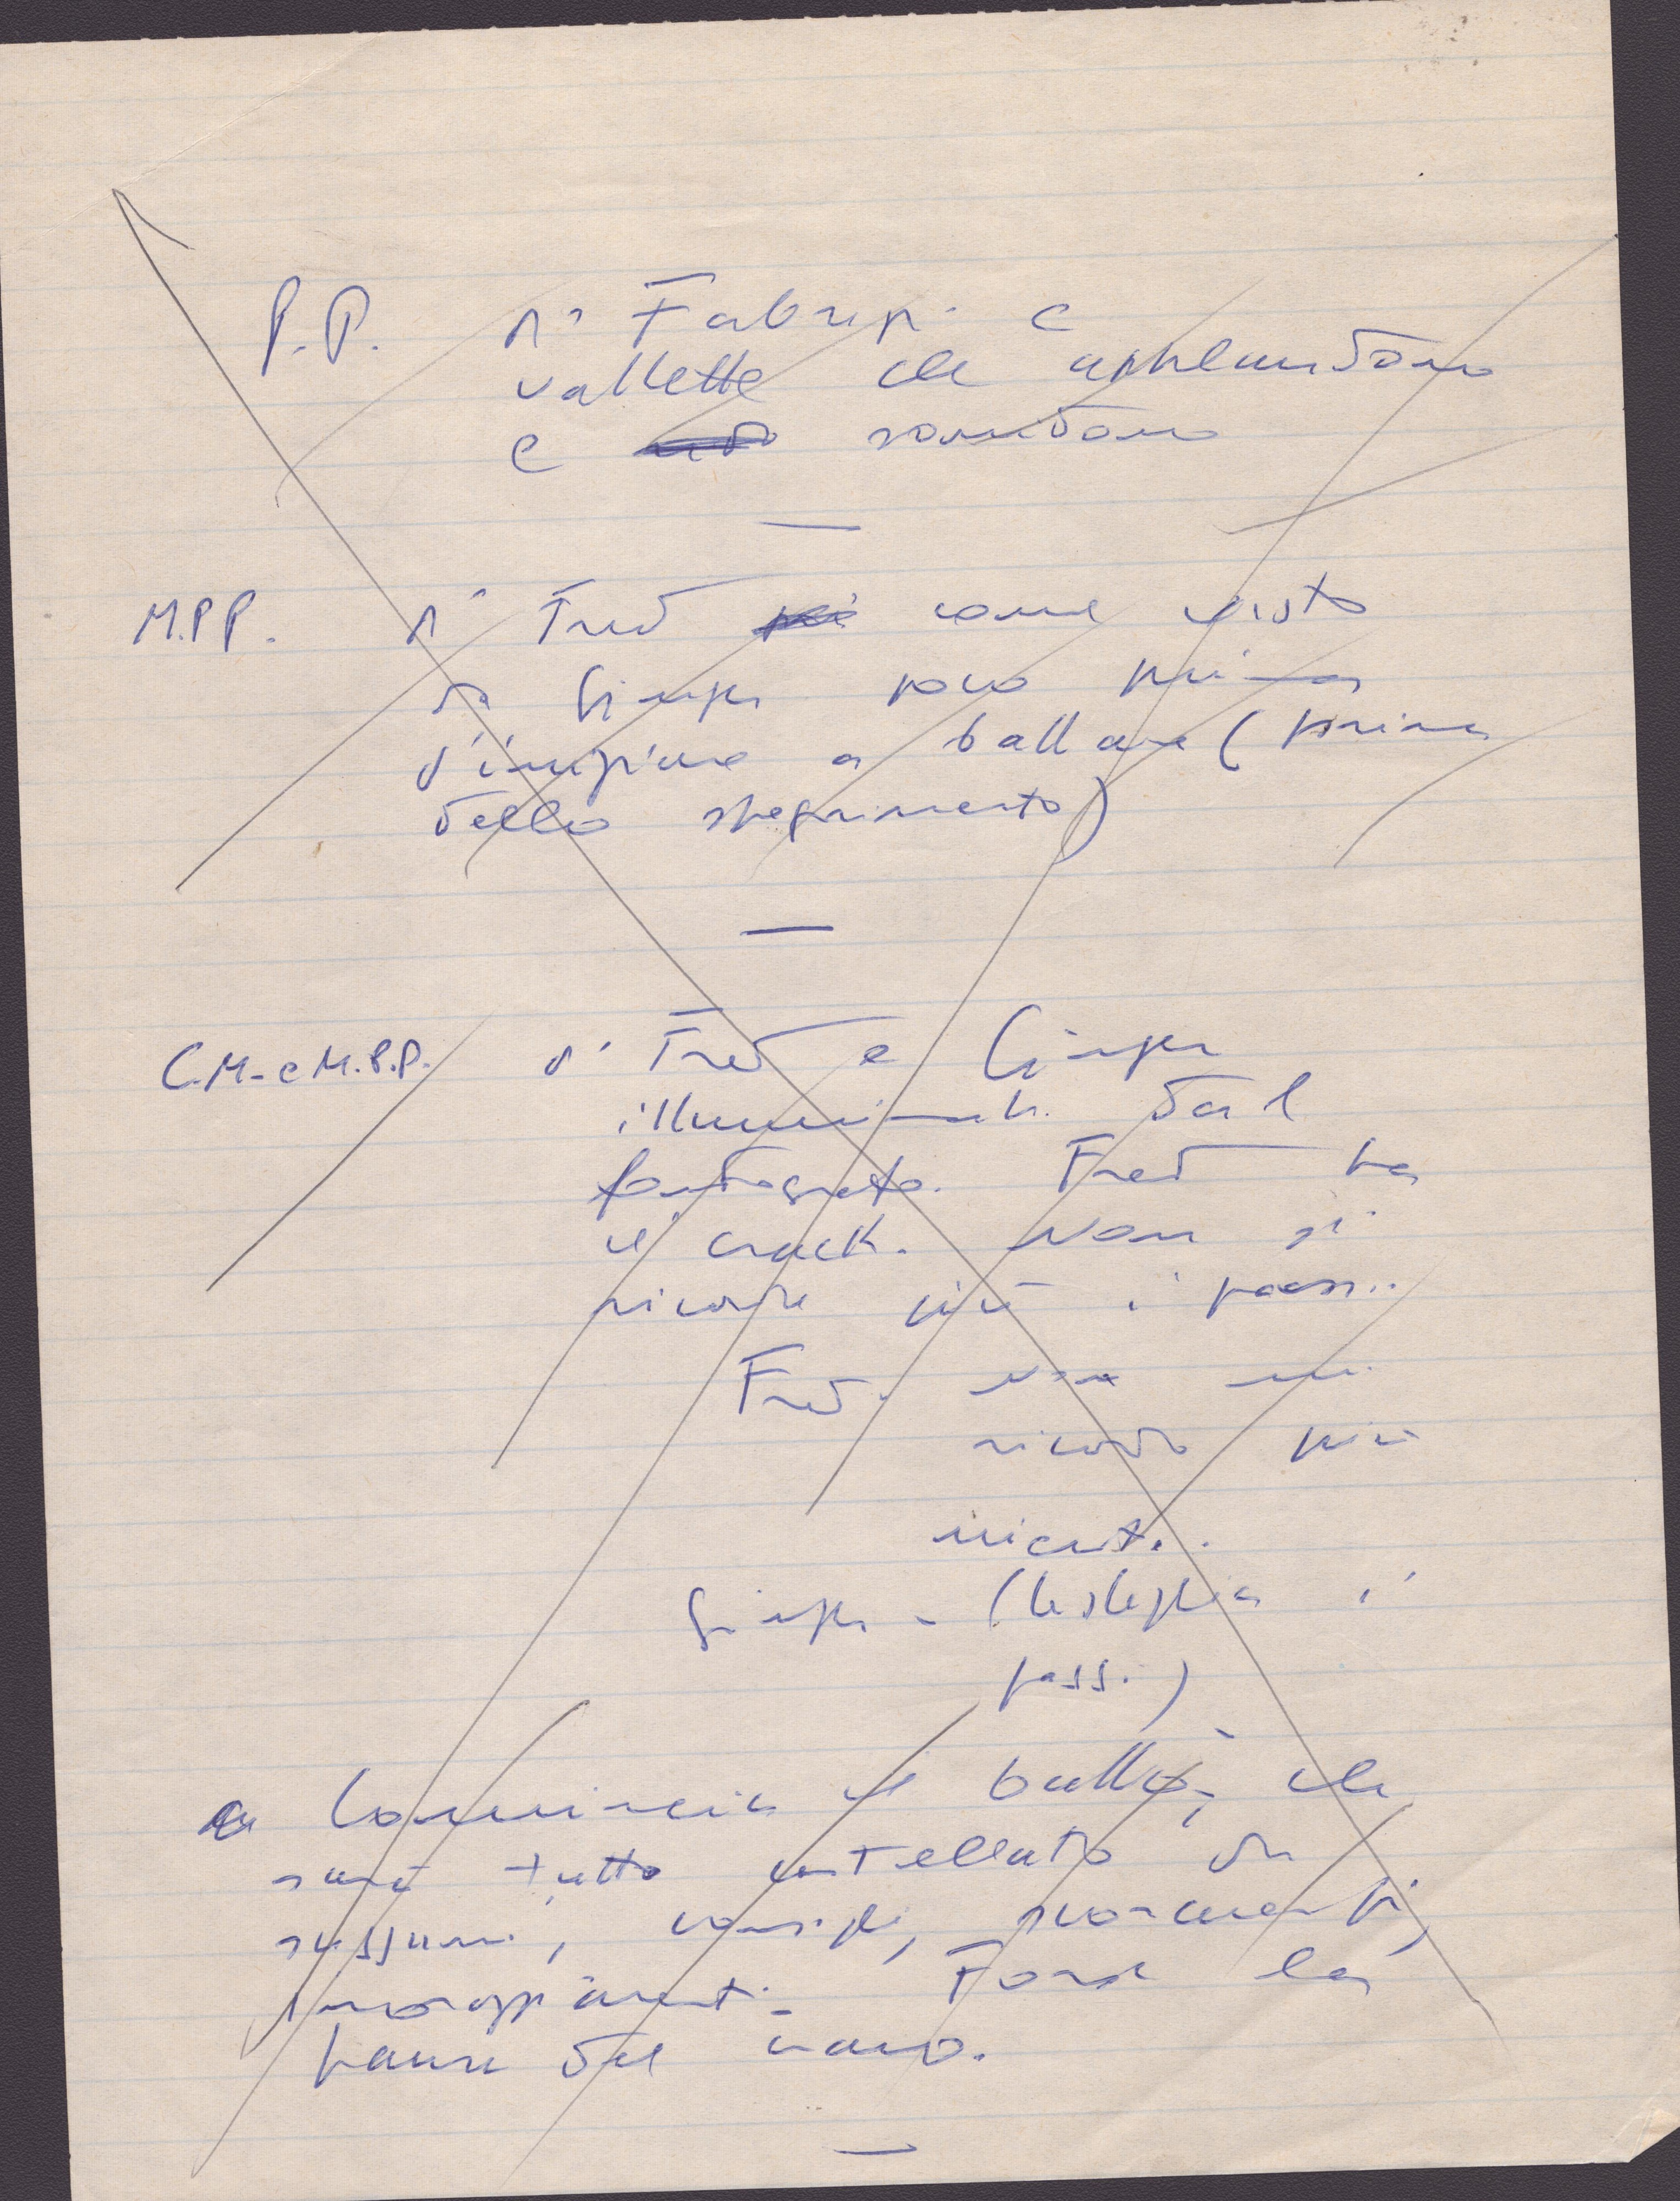 P.P. di Fabrizi e
vallette che applaudono
e sorridono
M.P.P. di Fred come visto
da Ginger poco prima
d'iniziare a ballare (prima
dello spegnimento)
C.M. e M.P.P. di Fred e Ginger
illuminati dal
Fred ha
il crack. Non si
ricorda più i passi..
Fred. non mi
ricordo più
niente..
Ginger - (bisbiglia i
passi)
Comincia il ballo, che
sarà tutto costellato da
sussurri, consigli,
Forse la
paura del